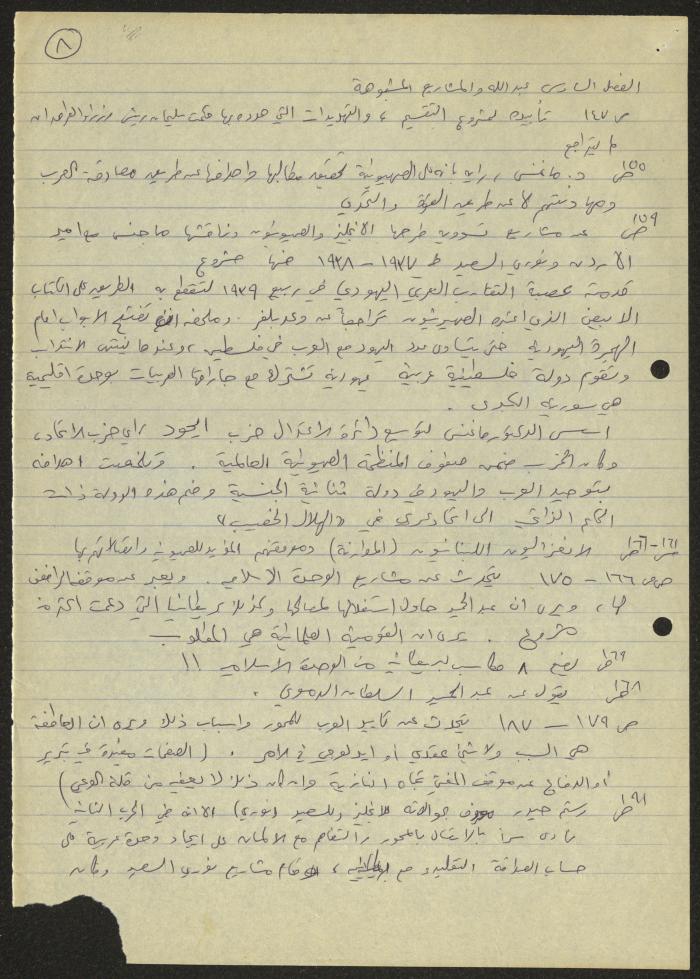 ٨
الفصل السادس عبد الله والمشاريع المشبوهة
ص ١٤٧ تأييده لمشروع التقسيم ، والتهديدات التي هدده بها حكمت سليمان رئيس وزراء العراق ان
لم يتراجع
ص ١٥٥ د. ماغنس ، رأيه بانه على الصهيونية تحقيق مطالبها واهدافها عن طريق مصادقة العرب
ومهادنتهم لا عن طريق القوة والتحدي
ص ١٥٩ عن مشاريع تسووية طرحها الانجليز والصهيونيون وناقشها ماجنس مع امير
الاردن ونوري السعيد ١٩٣٧ - ١٩٣٨ منها مشروع
قدمته عصبة التقارب العربي اليهودي في ربيع ١٩٣٩ لتقطع به الطريق على الكتاب
الابيض الذي اعتبره الصهيونيون تراجعاً عن وعد بلفور . وملخصه ان تفتح الابواب امام
الهجرة اليهودية حتى يتساوى عدد اليهود مع العرب في فلسطين ، وعندما ينتهي الانتداب
وتقوم دولة فلسطينية عربية يهودية تشترك مع جاراتها العربيات بوحدة اقليمية
هي سورية الكبرى .
اسس الدكتور ماغنس لتوسيع دائرة الاعتدال حزب ايحود اي حزب الاتحاد ،
وكان الحزب ضمن صفوف المنظمة الصهيونية العالمية . وتلخصت اهدافه
بتوحيد العرب واليهود في دولة ثنائية الجنسية وضم هذه الدولة ذات
الحكم الذاتي الى اتحاد عربي في "الهلال الخصيب"
ص ١٦١-١٦٦ الانعزاليون اللبنانيون (الموارنة) وموقفهم المؤيد للصهيونية واتصالاتهم بها
ص ص ١٦٦ - ١٧٥ يتحدث عن مشاريع الوحدة الاسلامية . ويعبر عن موقفه الرافض
لها ، ويرى ان عبد الحميد حاول استغلالها لمصالحه وكذلك بريطانيا التي دعمت اكثر من
مشروع . يرى ان القومية العلمانية هي المطلوب
ص ١٦٩ يضع ٨ مكاسب لبريطانيا من الوحدة الاسلامية !!
ص ١٦٨ يقول عن عبد الحميد السلطان الدموي .
ص ١٧٩ - ١٨٧ يتحدث عن تأييد العرب للمحور واسباب ذلك ويرى ان العاطفة
هي السبب ولا شئ عقدي او ايدلوجي في الامر . ( الصفحات مفيدة في تبرير
او الدفاع عن موقف المفتي تجاه النازية وان كان ذلك لا يعفيه من قلة الوعي )
رستم حيدر معروف بولائه للانجليز وللسعيد (نوري) الا انه في الحرب الثانية
نادى سراً بالاتصال بالمحور والتفاهم مع الالمان على ايجاد وحدة عربية على
حساب الصداقة التقليدية مع بريطانيا ، مشاريع نوري السعيد وكان